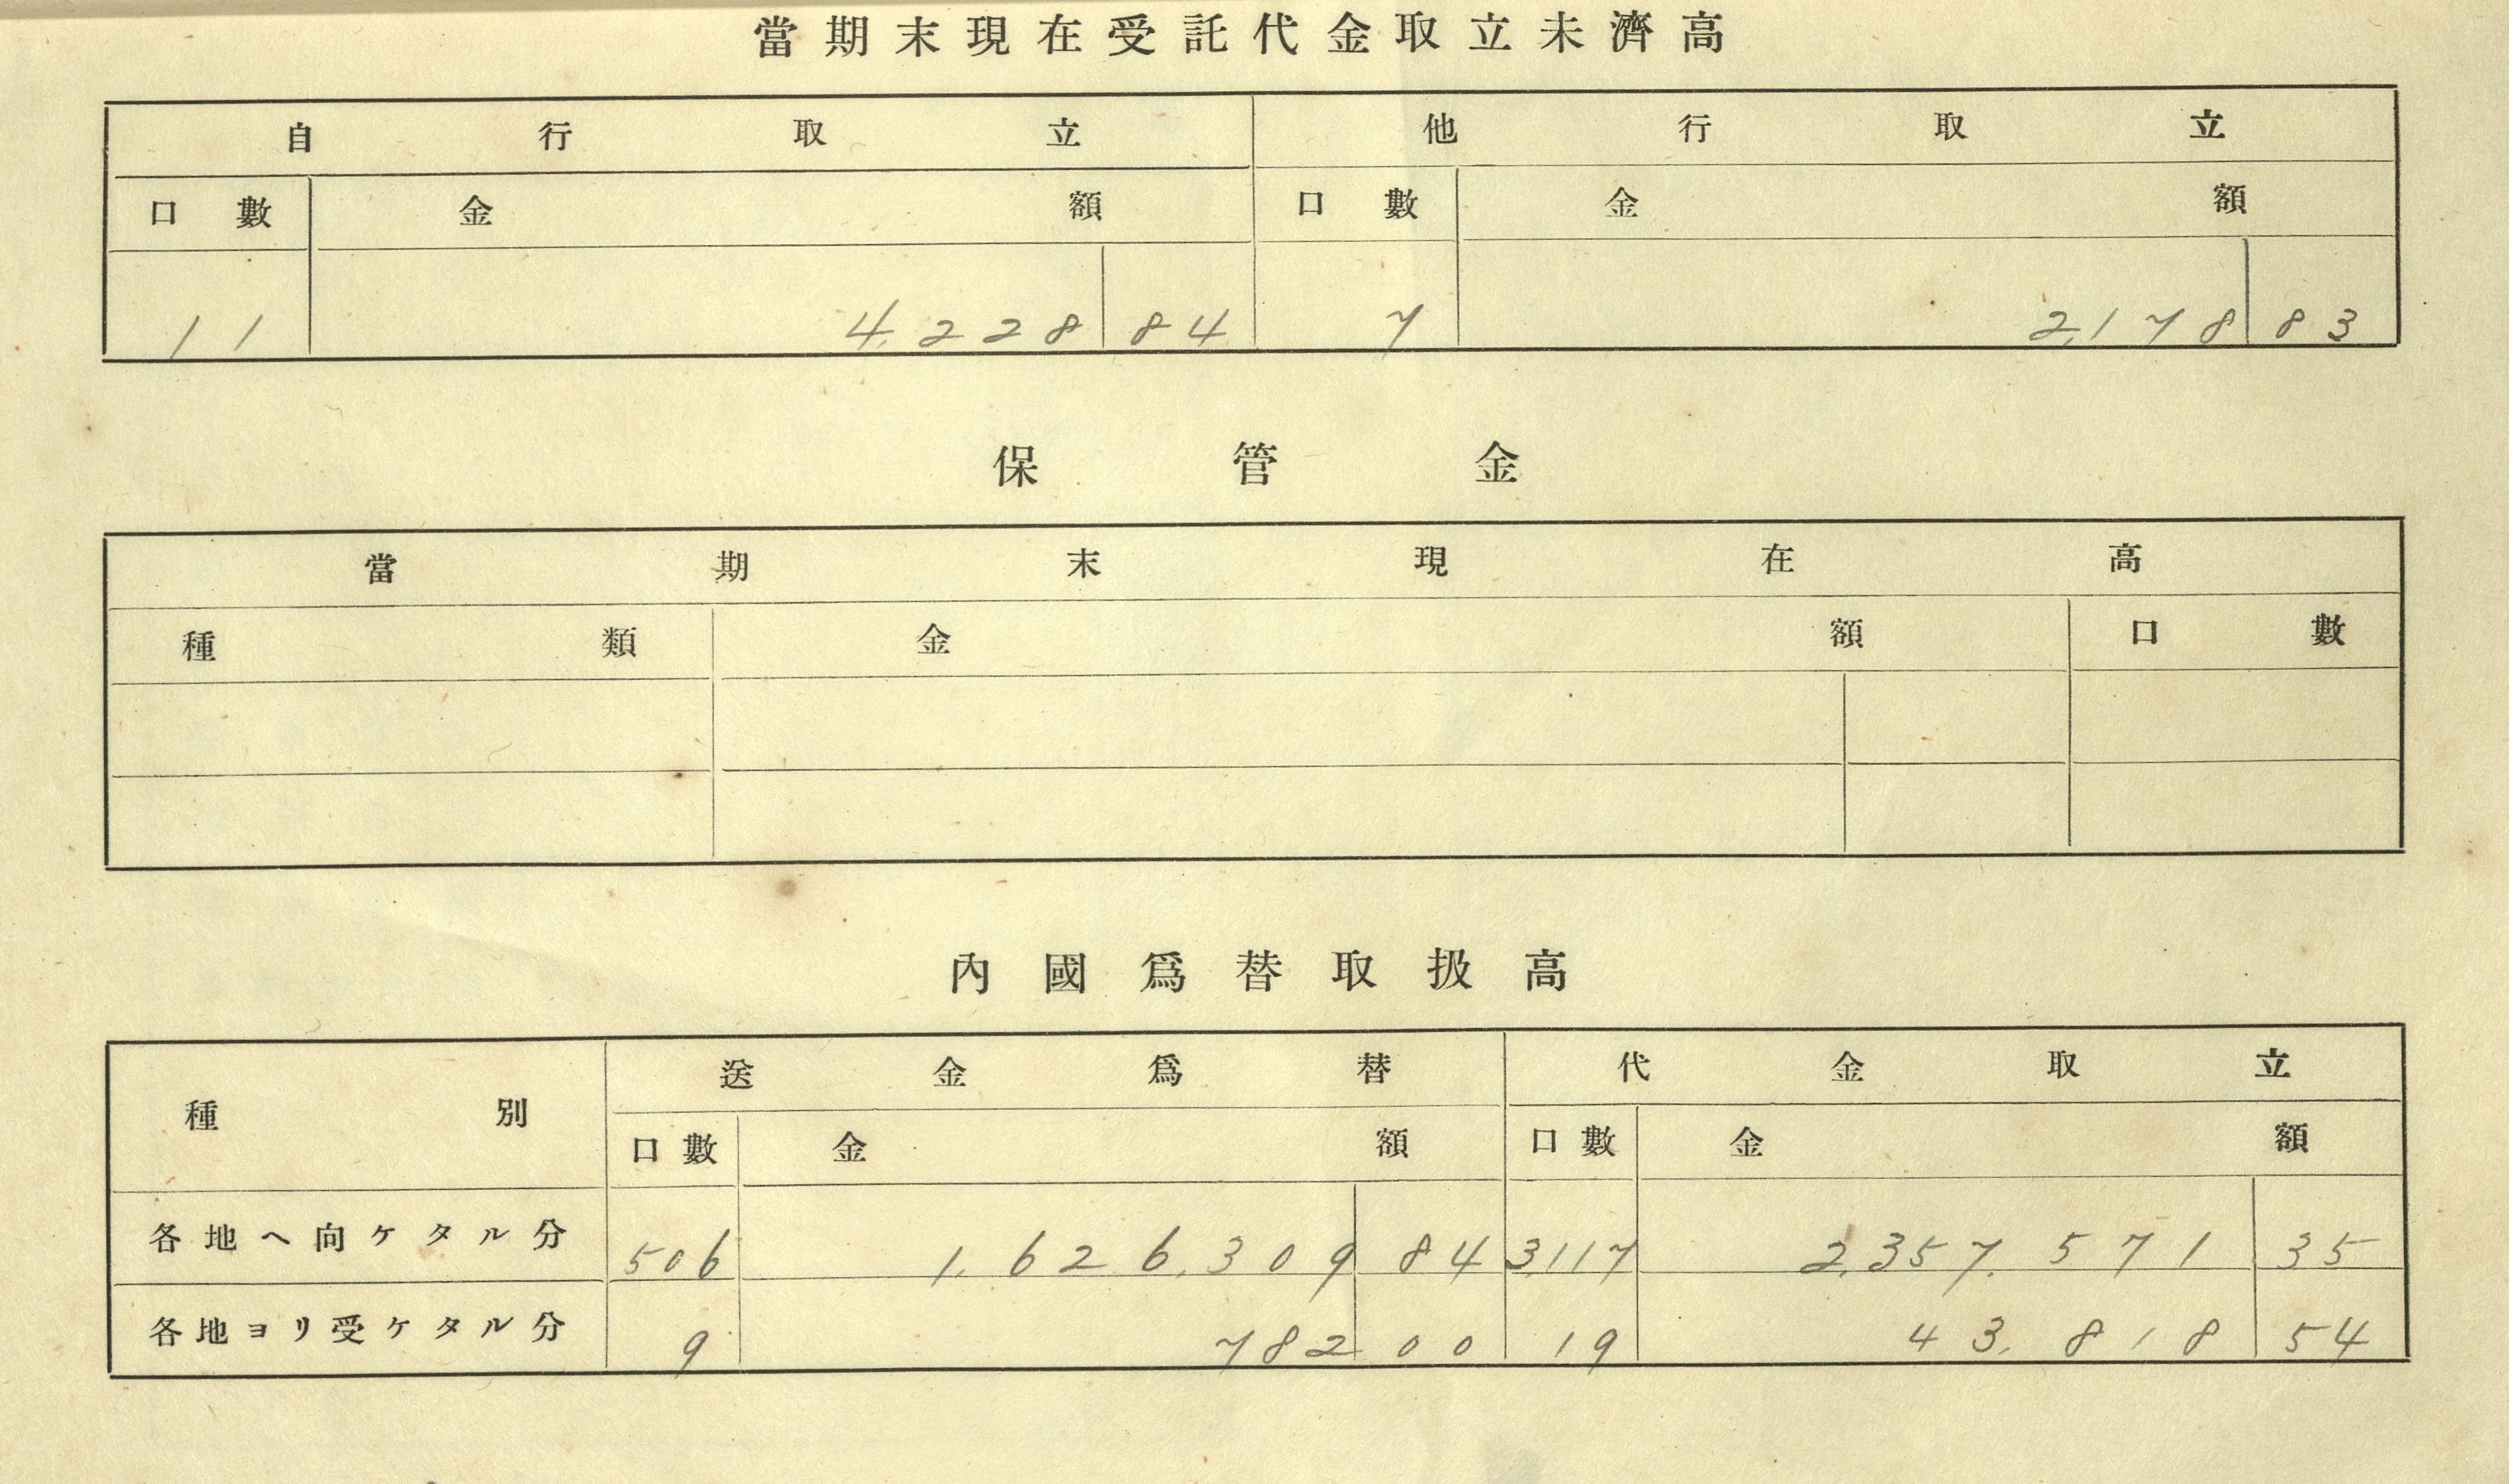 當期末現在受託代金取立未濟高
自行取立 他行取立
口數 金額 口數 金額
11 4,228 84 7 2,178 83
保管金
當期末現在高
種類 金額 口數
內國爲替取扱高
種別 送金爲替 代金取立
口數 金額 口數 金額
各地ヘ向ケタル分 506 1,626,309 84 3,117 2,357,571 35
各地ヨリ受ケタル分 9 782 00 19 43,818 54